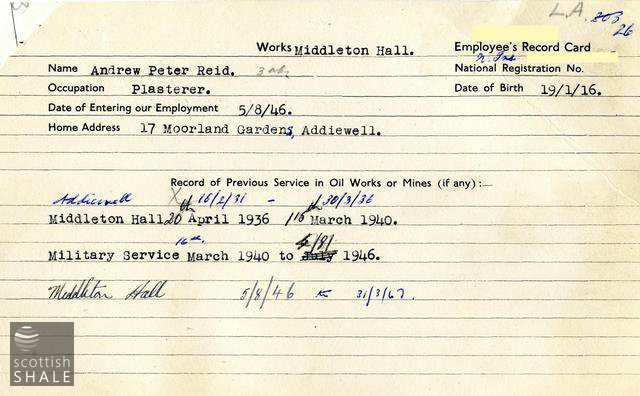 L.A. 26
Works Middleton Hall. Employee's Record Card
Name Andrew Peter Reid. National Registration No.
Occupation Plasterer. Date of Birth 19/1/16.
Date of Entering our Employment 5/8/46.
Home Address 17 Moorland Gardens, Addiewell.
Record of Previous Service in Oil Works or Mines (if any):—
Addiewell 16/2/31 - 30/3/36
Middleton Hall 20 April 1936 / 15 March 1940.
16th 4/8/
Military Service March 1940 to July 1946.
Middleton Hall 5/8/46 to 31/3/67.
scottish
SHALE